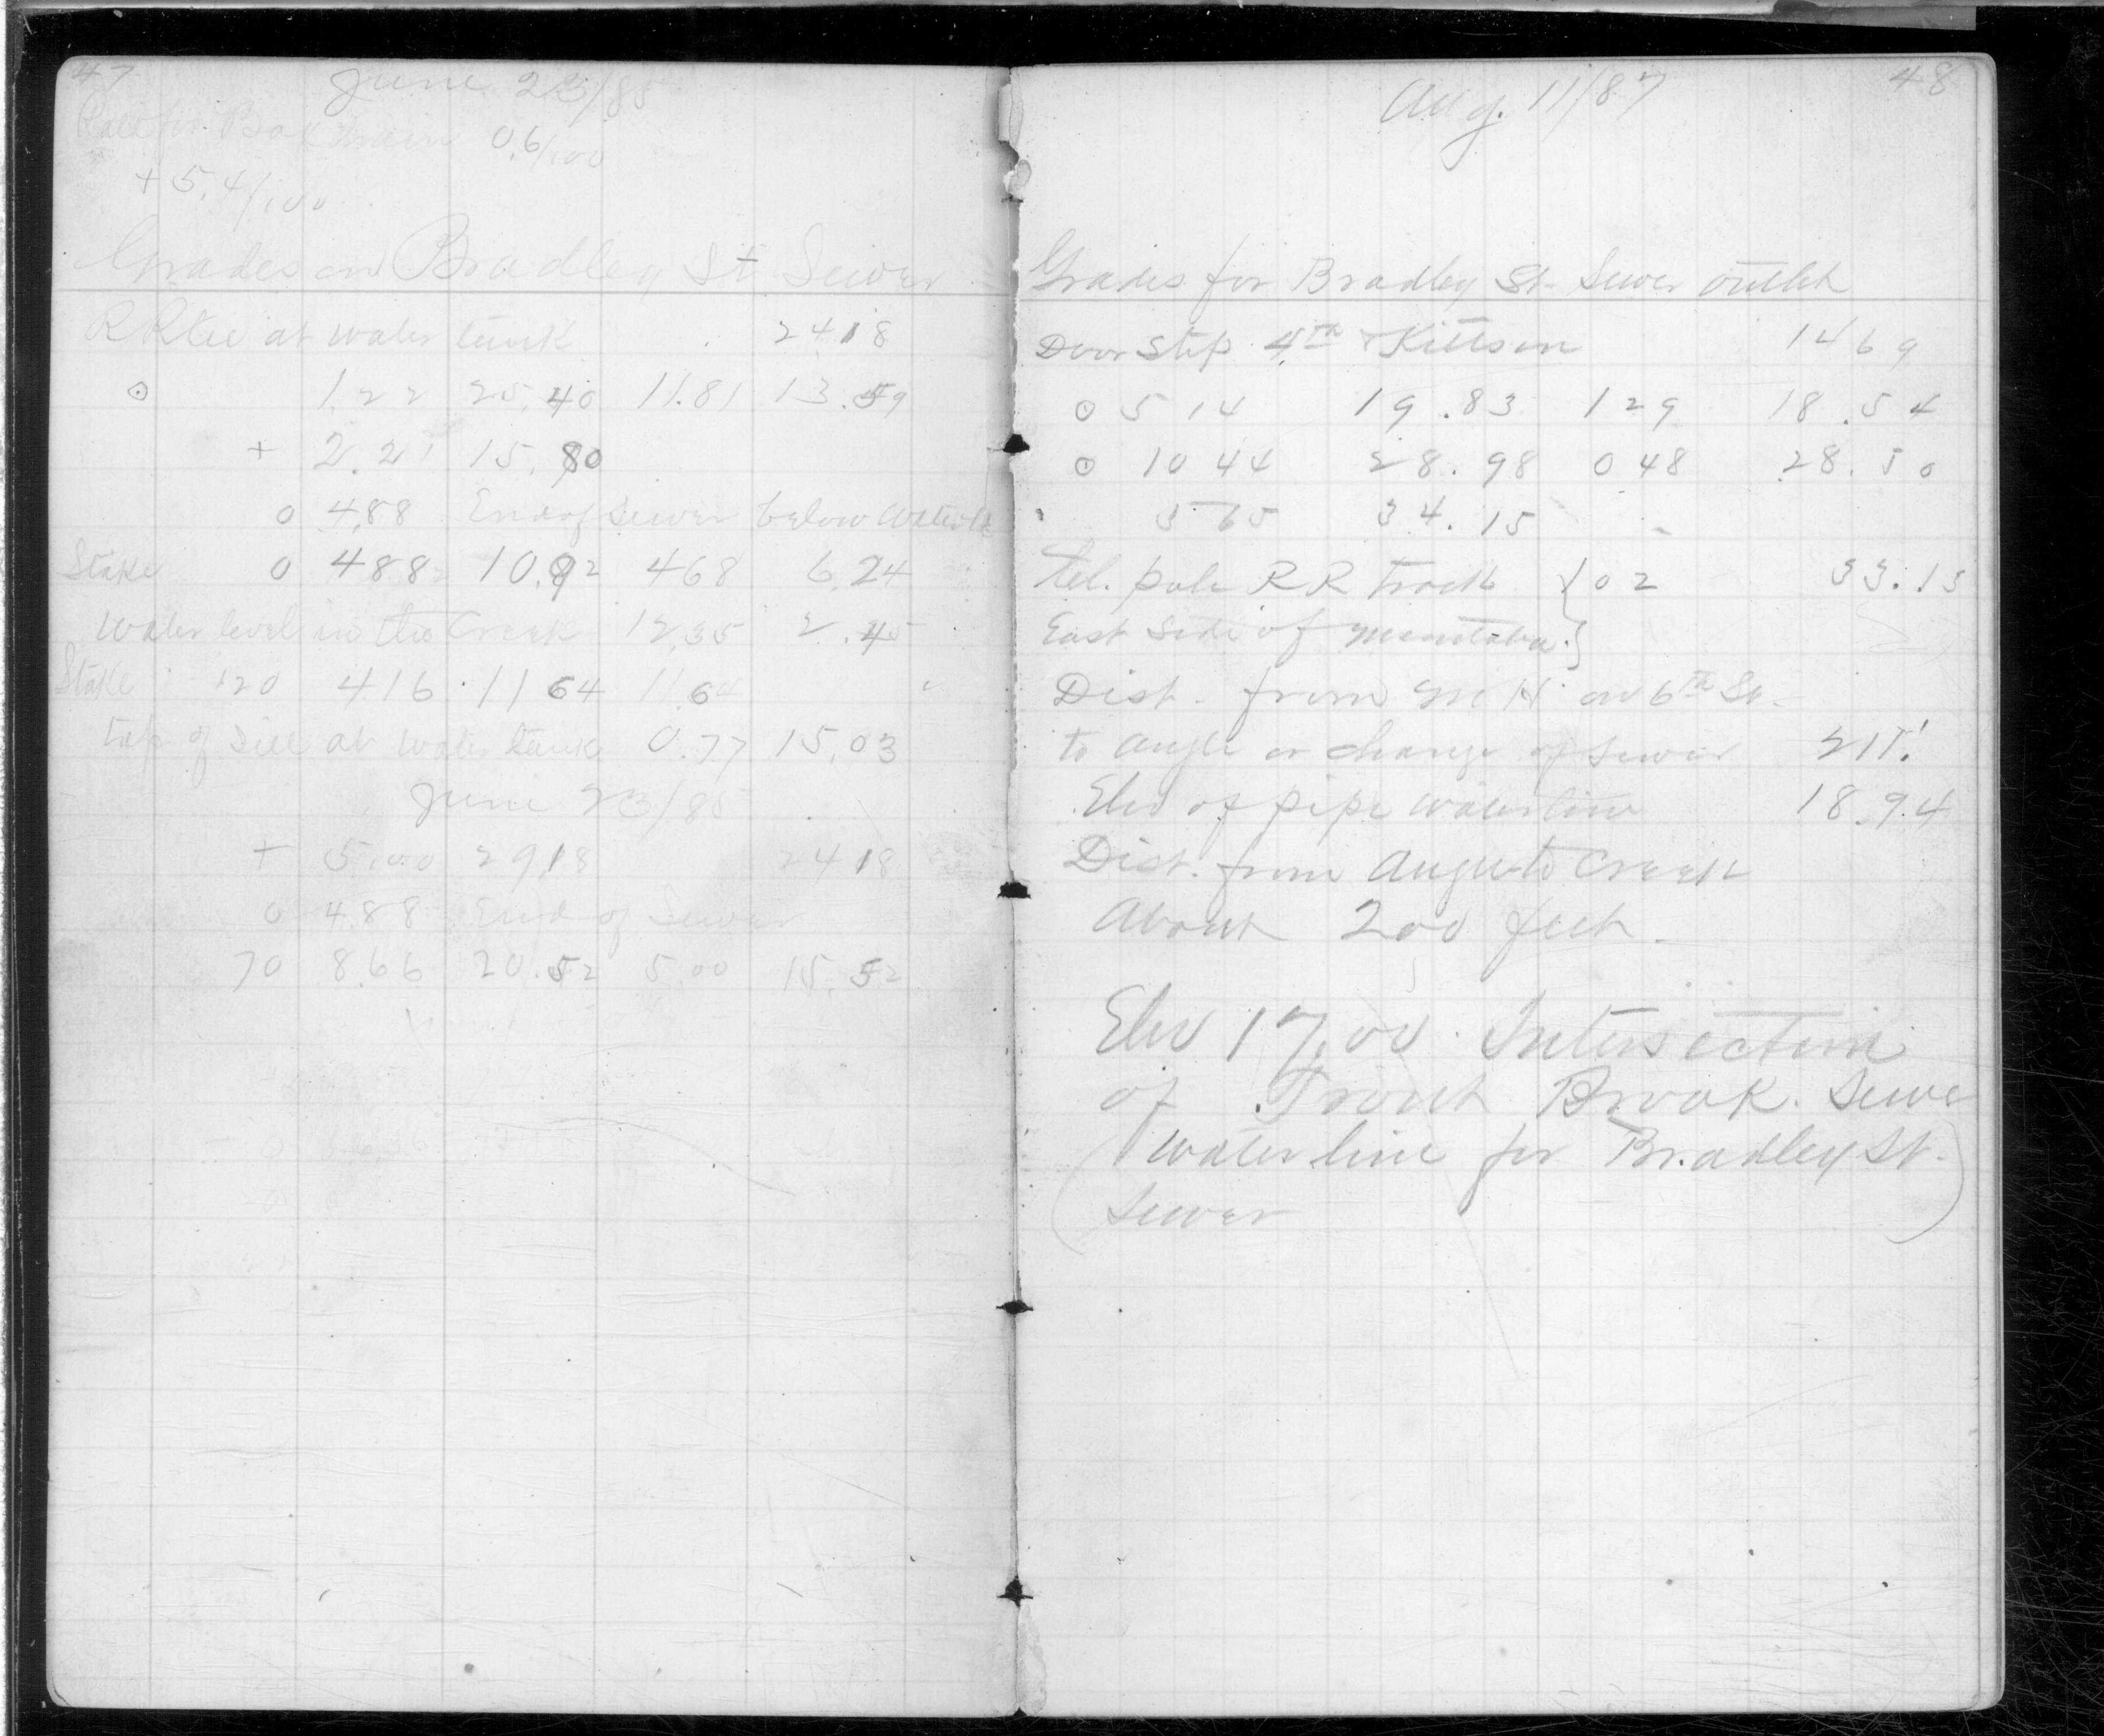 47
June 23/85
Rate for Box drain 0.6/100
+ 5.4/100
Grades on Bradley St Sewer
R R tie at water tank 24 18
⊙ 1.22 25.40 11.81 13.59
+ 2.21 15.80
0 4.88 End of Sewer below water
Stake 0 488 10.92 468 6.24
Water level in the Creek 12.35 2.45
Stake 120 416 11 64 11.64
top of Sill at water tank 0.77 15.03
June 23/85
+ 5.00 29.18 24 18
0 4.88 End of Sewer
70 8.66 20.52 5.00 15.52
48
Aug. 11/87
Grades for Bradley St. Sewer outlet
Door Step 4th & Kittson 14 69
⊙ 5 14 19.83 1 29 18.54
⊙ 10 44 28.98 0 48 28.50
5 65 34.15
Tel. pole R R track } 02 33.13
East Side of Manitoba }
Dist. from M H on 6th St.
to angle or change of Sewer 211'
Elev of pipe waterline 18.94
Dist. from Creek
About 200 feet.
Elev 17.00 Intersection
of Trout Brook Sewer
(Waterline for Bradley St.
Sewer)